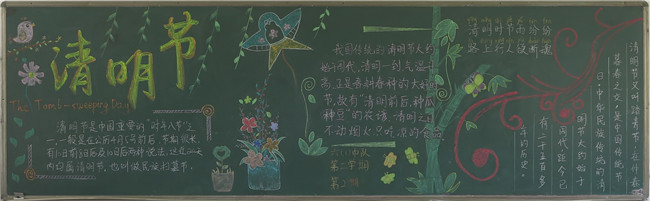 清明节
The Tomb-sweeping Day
清明节是中国重要的"时年八节"之
一,一般是在公历4月5号前后,节期很长,
有10日前8日后及10日前10日后两种说法,这近20天
内均属清明节,也叫做民间扫墓节。
我国传统的清明节大约
始于周代,清明一到气温升
高,正是春耕春种的大好时
节,故有"清明前后,种瓜
种豆"的农谚。清明
不动烟火,只吃凉的食品
第二学期
清明时节雨纷纷
路上行人欲断魂
清明节又叫踏青节,在仲春与
暮春之交,是中国传统节
日,中华民族传统的清
明节大约始于
周代,距今已
有二千五百多
年的历史。